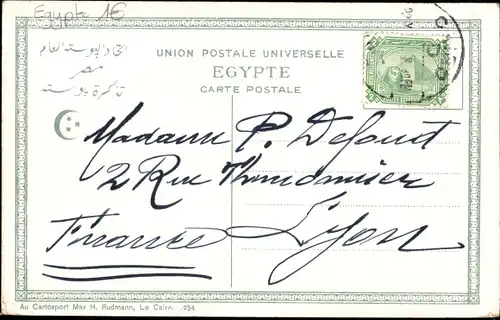 Egypt 1€
UNION POSTALE UNIVERSELLE
EGYPTE
CARTE POSTALE
اتحاد البوستة العام
مصر
تذكرة بوستة
Madame P. Defout
2 Rue Thomassin
Lyon
France
Au Cartosport Max H. Rudmann, Le Caire. 234